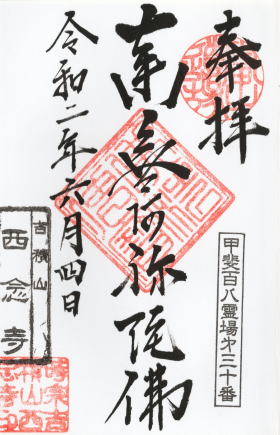 奉拝
甲斐百八霊場第三十番
南無阿弥陀佛
令和二年六月四日
吉積山
西念寺